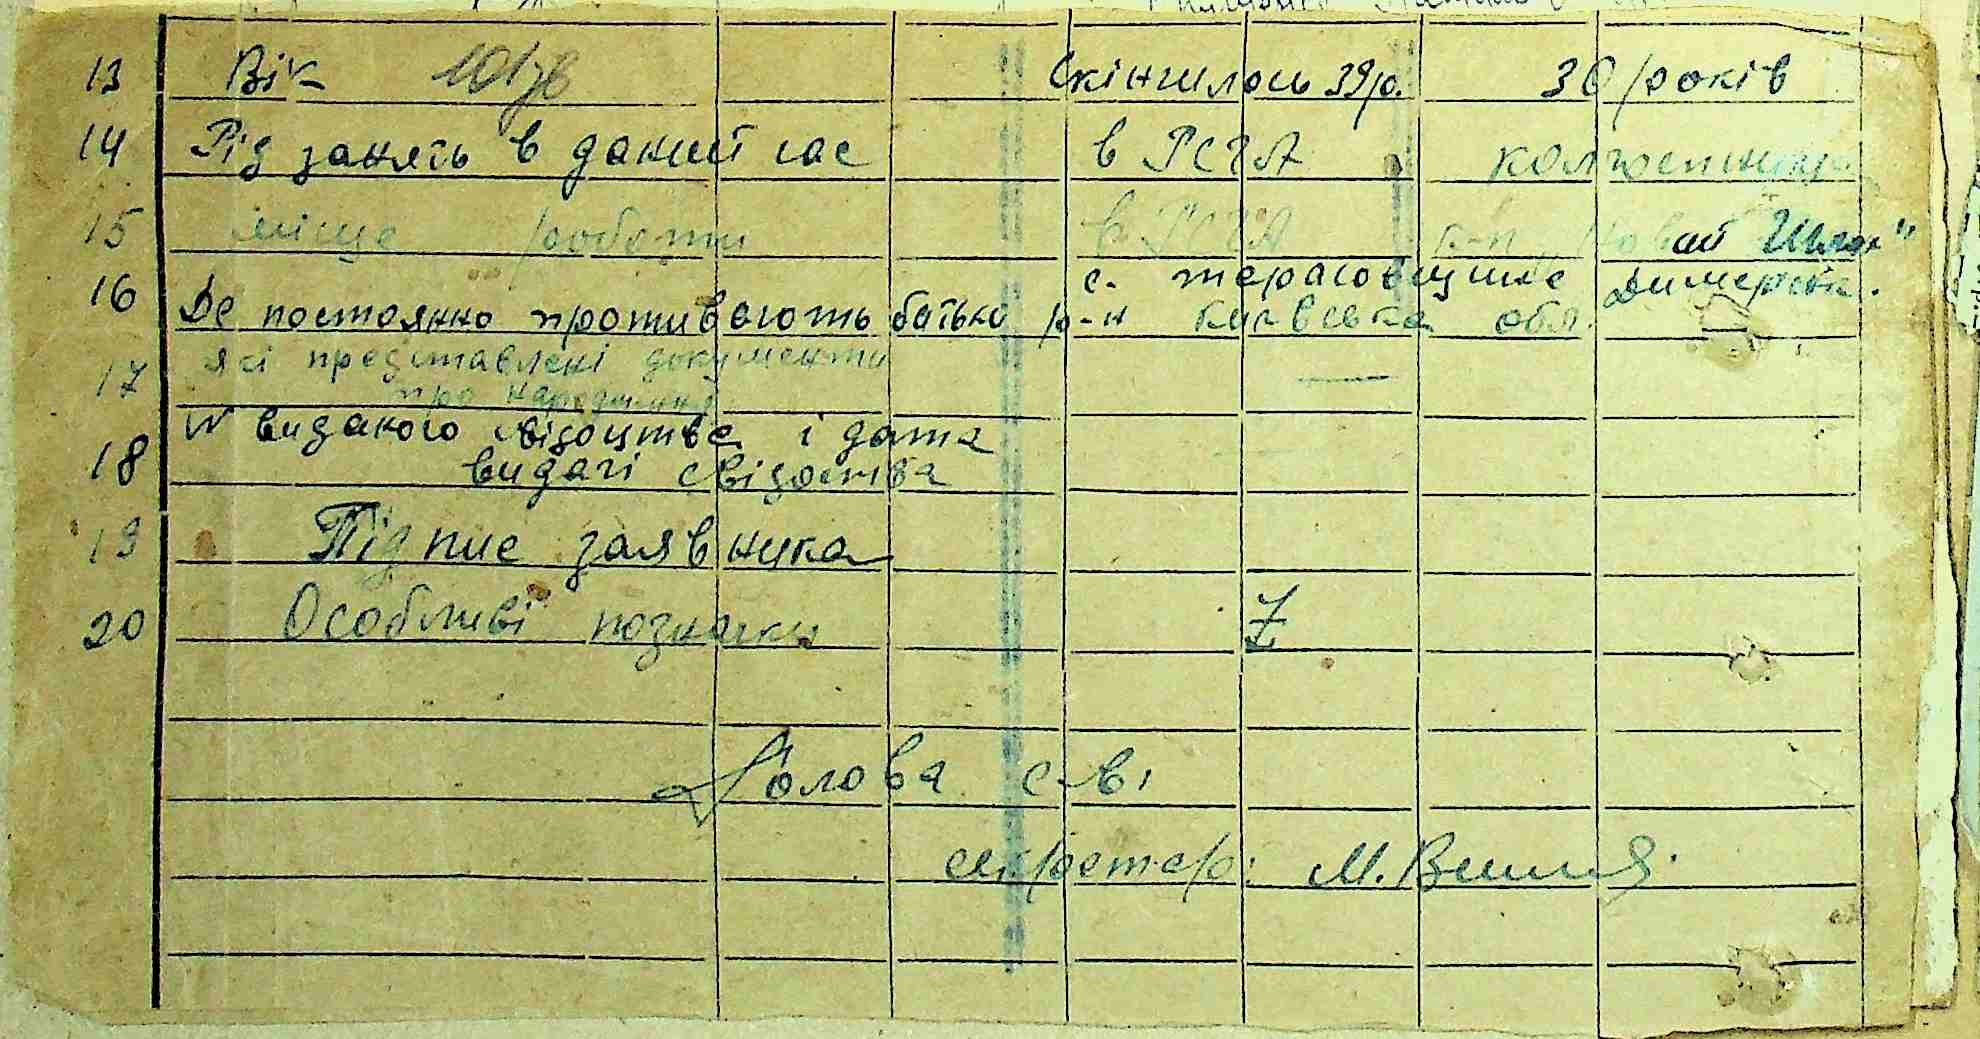 13 Вік Скінчилось 39 р. 30 років
14 Рід занять в даний час в РСЧА колгоспниця
15 місце роботи в РСЧА к-п Новий Шлях"
16 Де постоянно проживають батьки с. тарасовщина Димерськ.
р-н київська обл.
17 які представлені документи
про народження
18 № виданого свідоцтва і дата
видачі свідоства
19 Підпис заявника
20 Особливі позначки Z
Голова с-ві
секретар: М.